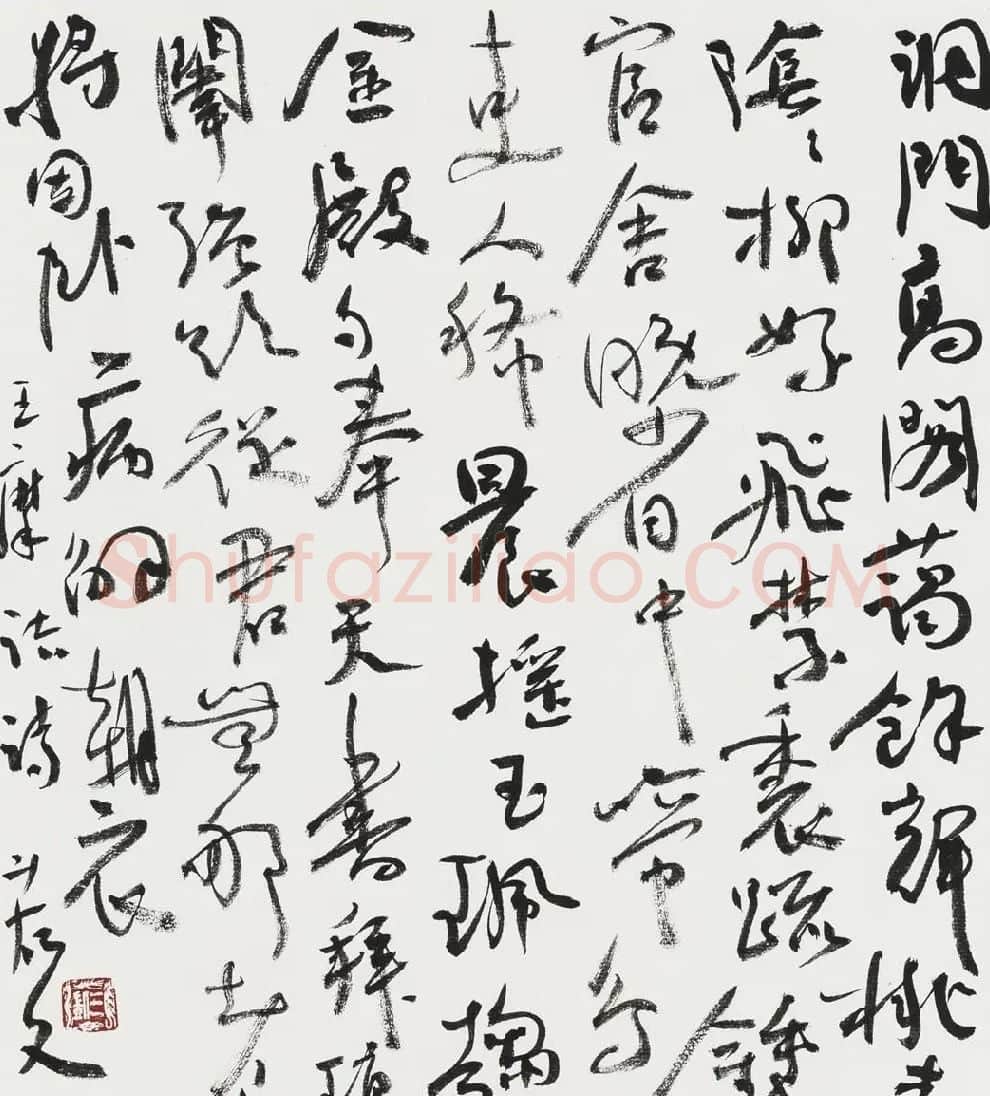 洞門高閣藹餘輝桃
陰〻柳絮飛禁裏疏鐘
官舍晚省中啼鳥
吏人稀晨搖玉珮趨
金殿夕奉天書拜瑣
闈強欲從君無那老
將因卧病解朝衣
王摩詰詩 文
Shufaziliao.COM